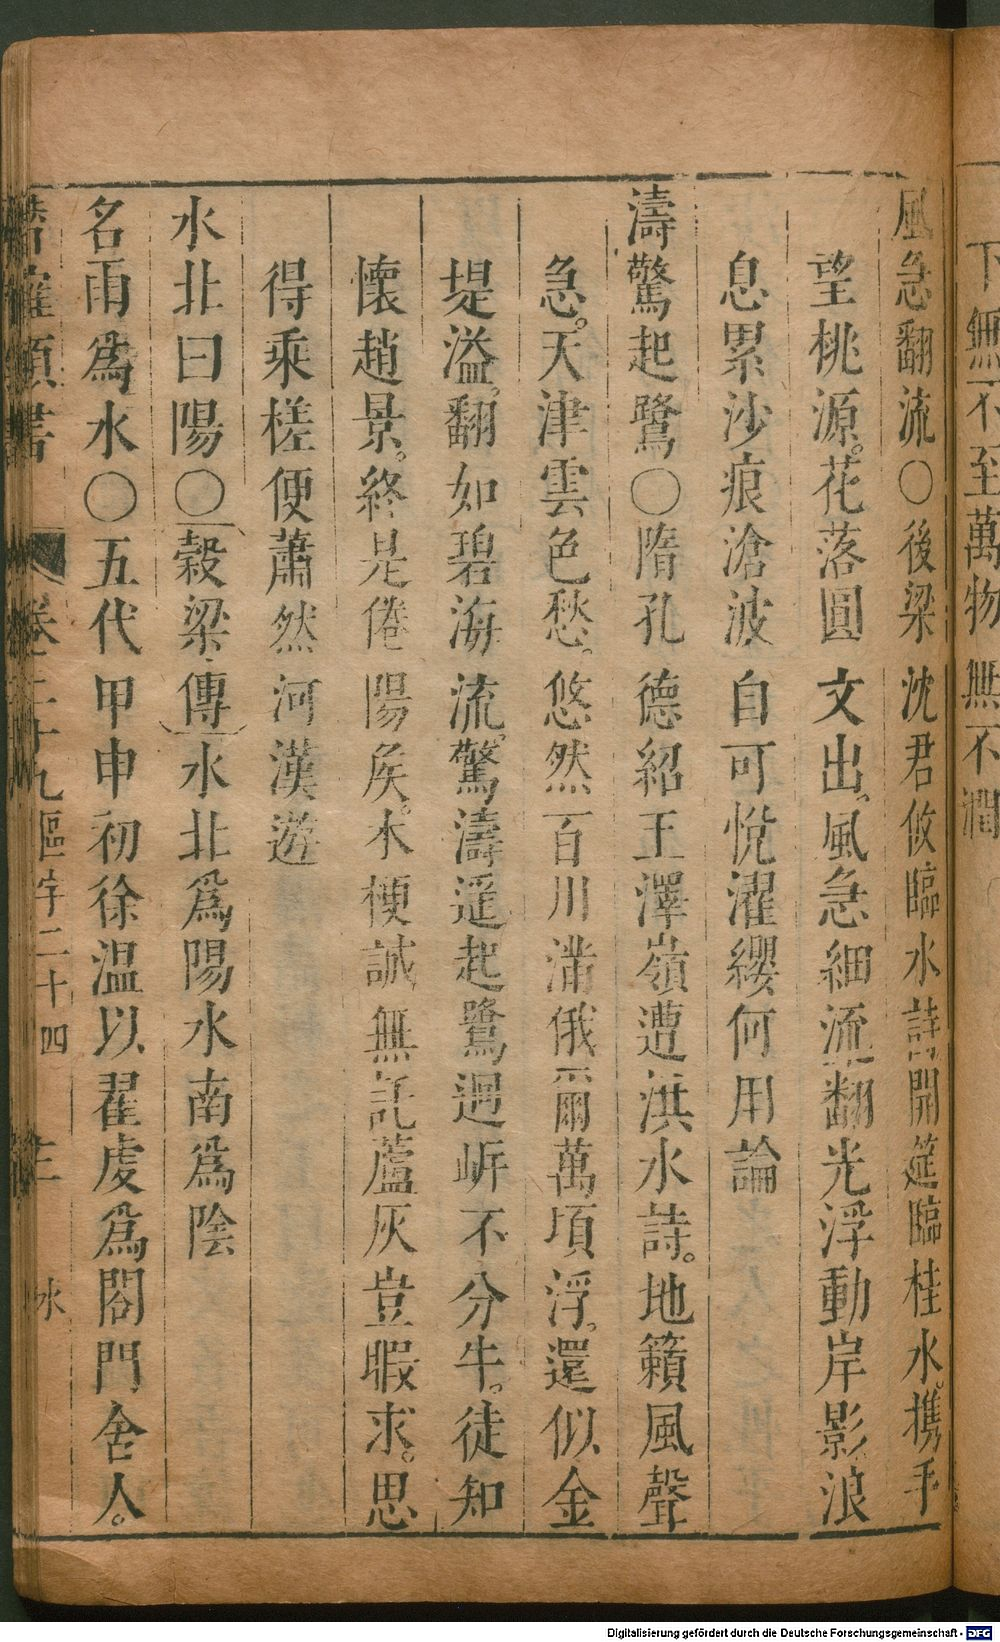 下無不至萬物無不潤
風急翻流〇後梁沈君攸臨水詩開筵臨桂水。攜手
望桃源。花落圓文出。風急細流翻光浮動岸影浪
息累沙痕滄波自可悅濯纓何用論
濤驚起鷺〇隋孔德紹王澤嶺遭洪水詩。地籟風聲
急。天津雲色愁。悠然百川滿俄爾萬頃浮。還似金
堤溢。翻如碧海流。驚濤遥起鷺迴岍不分牛。徒知
懷趙景。終是倦陽侯。木梗誠無託蘆灰豈暇求。思
得乘槎便蕭然河漢遊
水北曰陽〇穀梁傳水北爲陽水南爲陰
名雨爲水〇五代甲申初徐温以翟虔爲閤門舍人。
類書 卷二十九區宇二十四 三 水
Digitalisierung gefördert durch die Deutsche Forschungsgemeinschaft - DFG